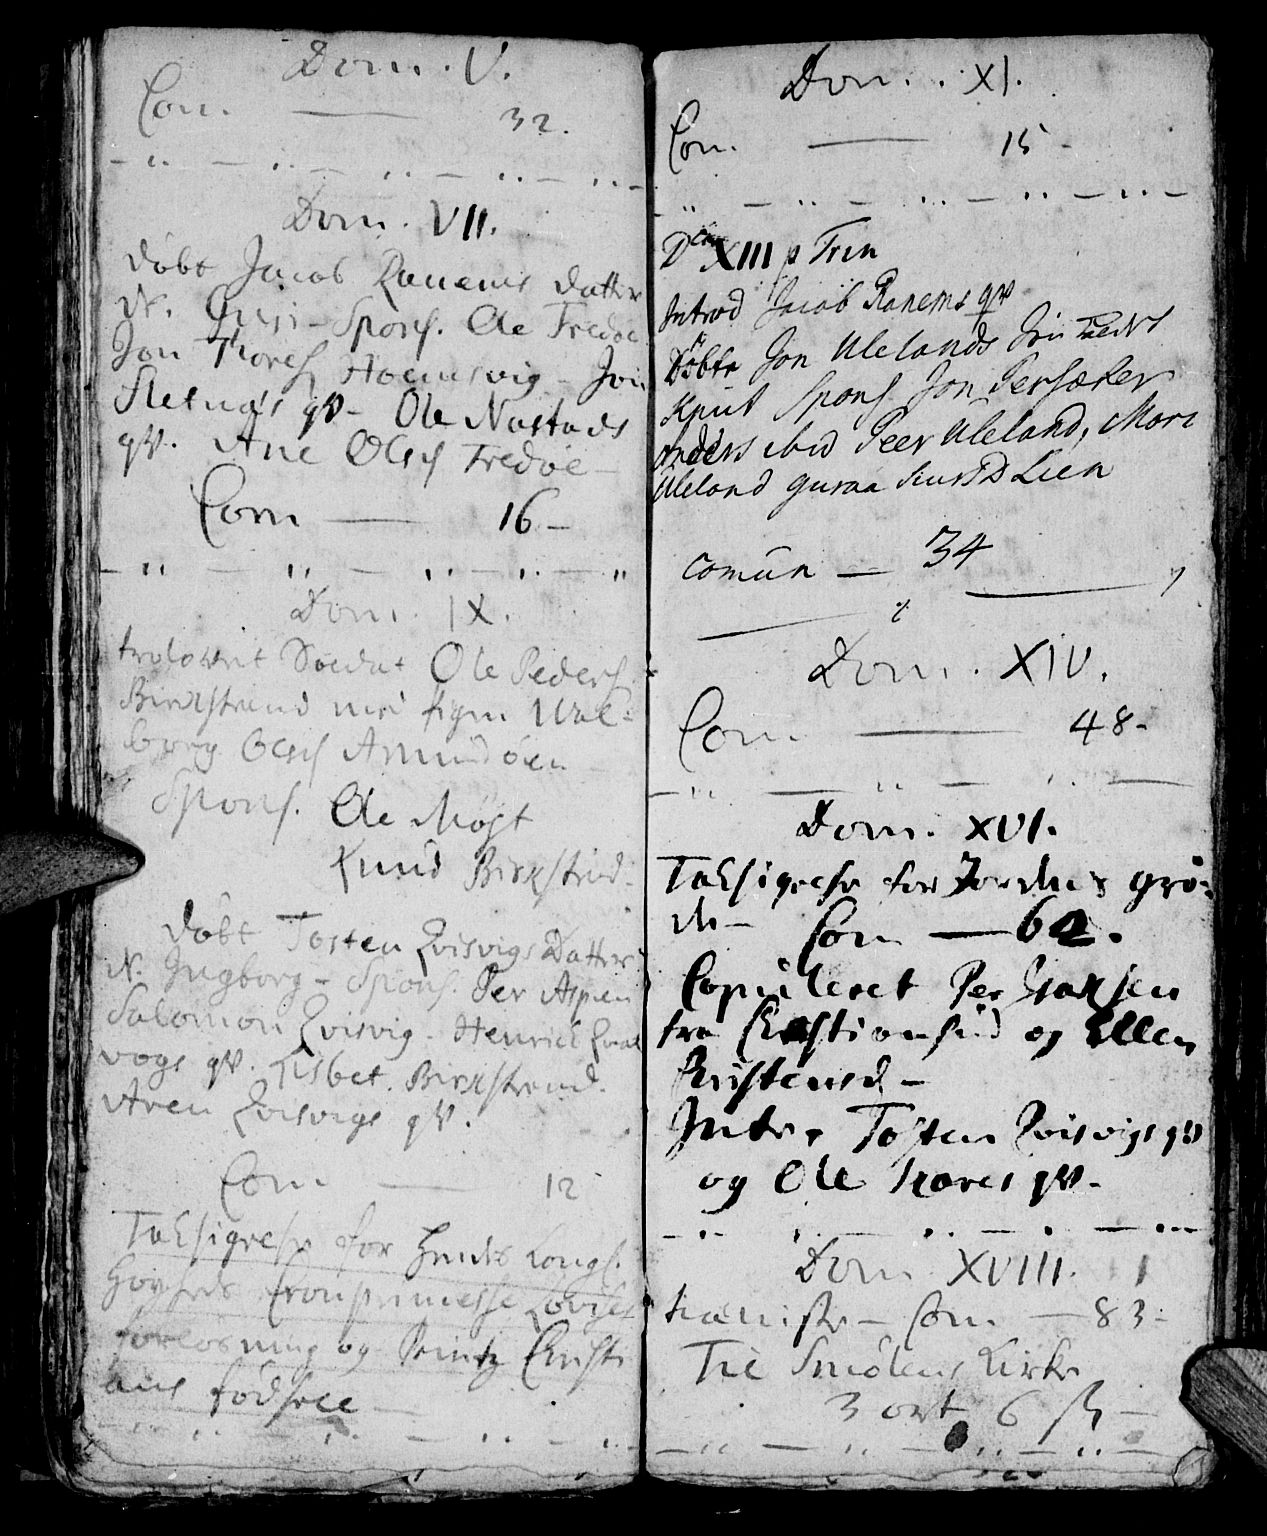 Dom. V.
Com. — 32.
Dom. VII.
Døbt Jacob Ranems datter
N. Guri - Spons. Ole Fredøe
Jon Thores. Holmsvig - Jon
Sletnæs qv - Ole Nastads
qv. Ane Olsd Fredøe -
Com — 16 -
Dom. IX.
trolovet Soldat Ole Peders.
Birkstrand med Pigen Wal-
borg Olsd Amundøen
Spons. Ole Møst
Knud Birkstrd.
døbt Tosten Qvisvigs Datter
N. Ingborg - Spons. Per Aspen
Salomon Qvisvig - Henrich
vogs qv. Lisbet Birkstrand.
Aren Qvisvigs qv.
Com — 12
Taksigelse for Hendes Kongl.
Høyheds Cronprincesse Lovises
forløsning og Printz Christi
ans fødsel -
Dom. XI.
Com. — 15 -
Dca XIII p Trin
Introd Jacob Ranems qv
Døbte Jon Ulelands
Knut Spons Jon Persæter
Anders ibid Peer Uleland, Mari
Uleland guraa Lien
comun — 34
Dom. XIV.
Com — 48 -
Dom. XVI.
Taksigelse for Jordens grø-
de - Com — 62.
Copuleret Per Isaksen
fra Christiansund og Ellen
Kristensd -
Intr. Tosten Qvisvigs qv
og Ole Thores qv -
Dom XVIII.
Com — 83 -
Til Smølens Kirke
3 ort 6 ß —